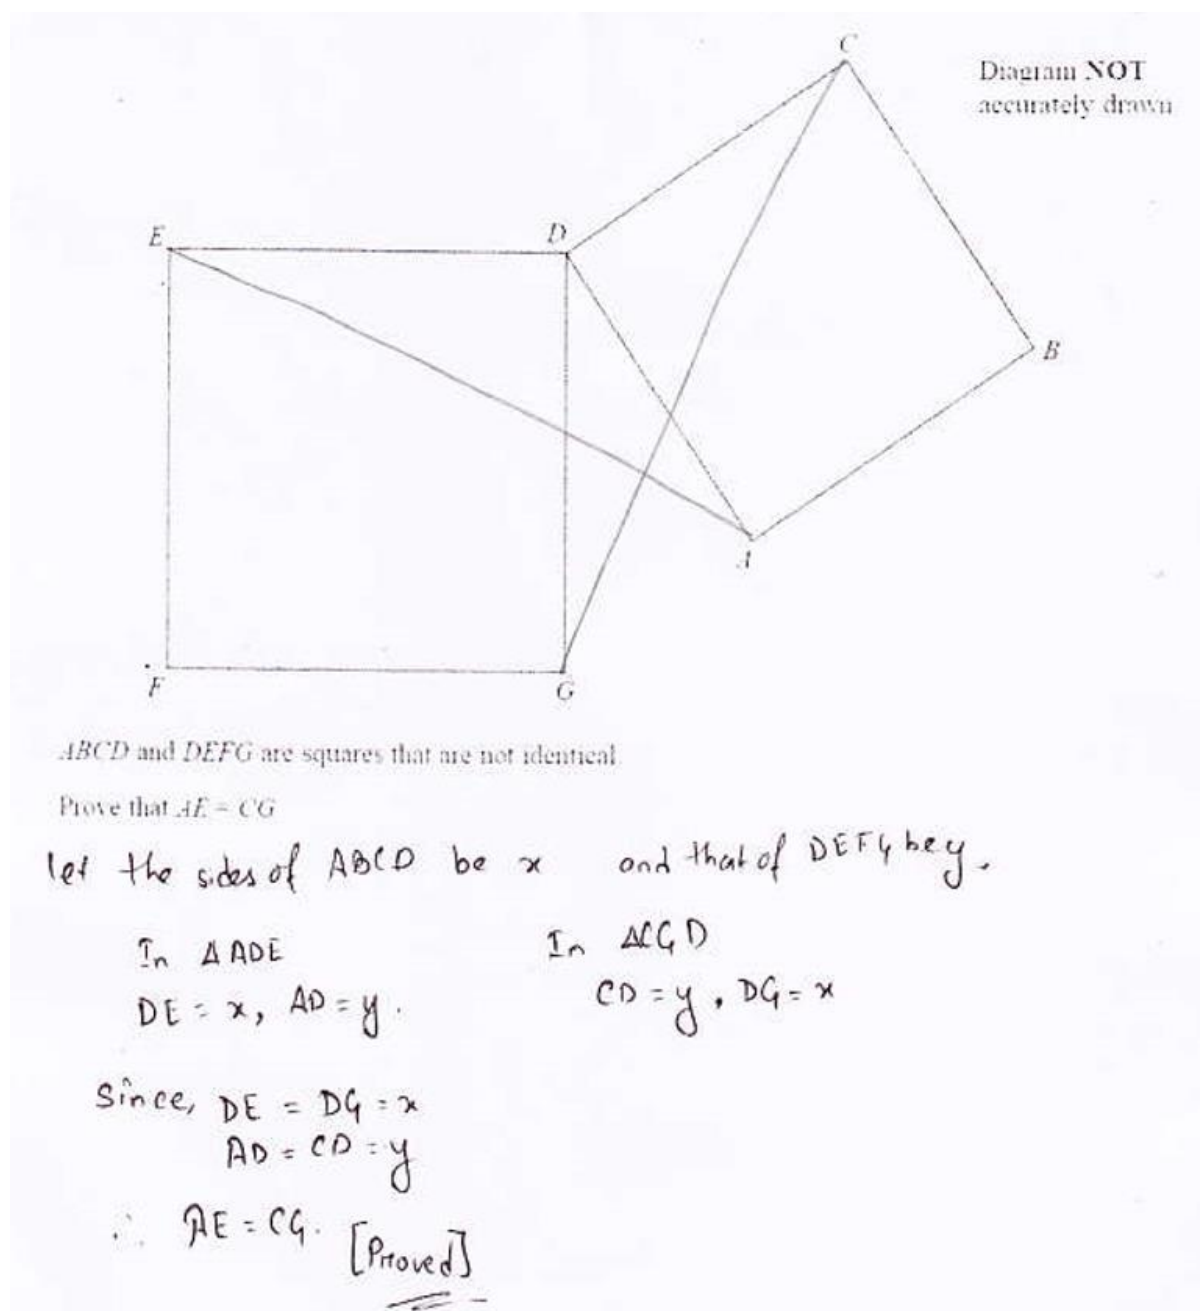 C
Diagram NOT
accurately drawn
E
D
B
A
F
G
ABCD and DEFG are squares that are not identical
Prove that AE = CG
let the sides of ABCD be x and that of DEFG be y.
In Δ ADE In ΔCGD
DE = x, AD = y. CD = y, DG = x
Since, DE = DG = x
AD = CD = y
∴ AE = CG. [Proved]